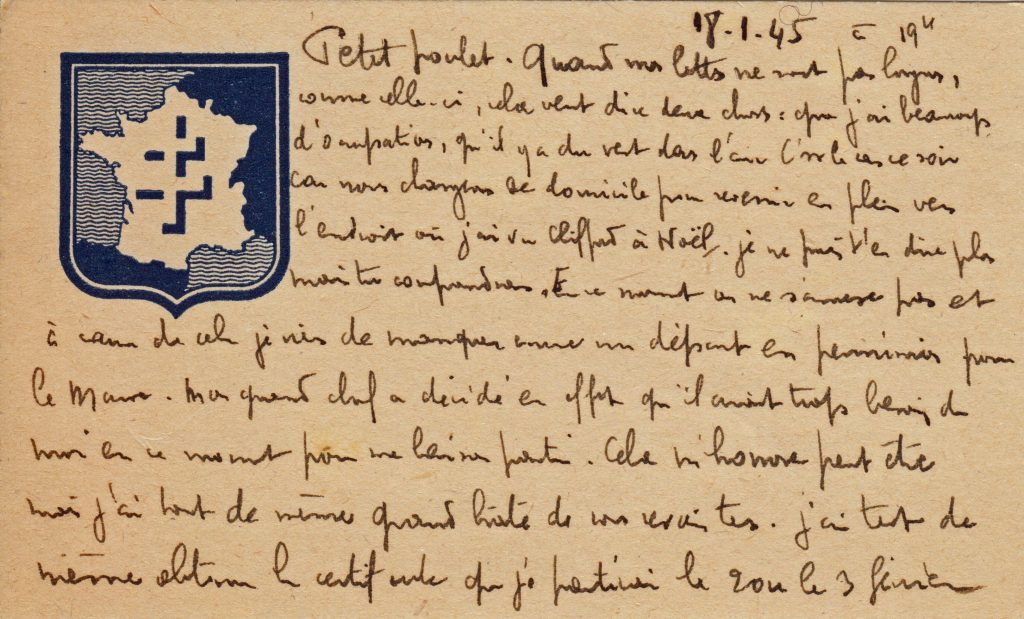 18.1.45 à 19H
Petit poulet. Quand mes lettres ne sont pas longues,
comme celle-ci, cela veut dire deux choses : que j'ai beaucoup
d'occupations, qu'il y a du vent dans l'air. C'est le cas ce soir
car nous changeons de domicile pour revenir en plein vers
l'endroit où j'ai vu Clifford à Noël. je ne puis t'en dire plus
mais tu comprendras. En ce moment on ne s'amuse pas et
à cause de cela je viens de manquer encore un départ en permission pour
le Maroc. Mon grand chef a décidé en effet qu'il avait trop besoin de
moi en ce moment pour me laisser partir. Cela m'honore peut être
mais j'ai tout de même grand hâte de vous revoir tes. j'ai tout de
même obtenu la certitude que je partirai le 2 ou le 3 février